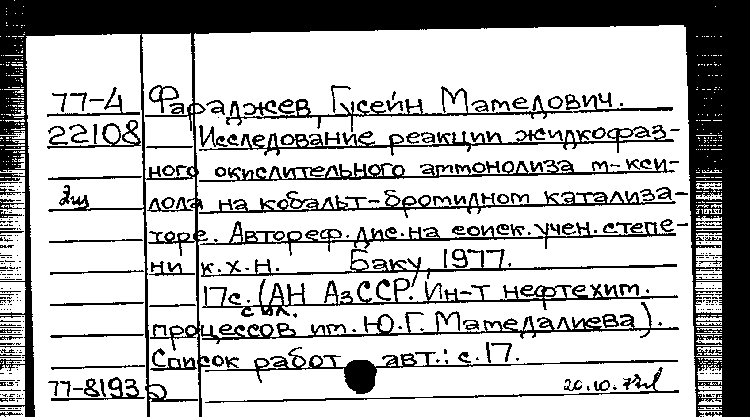 77-4 Фараджев, Гусейн Мамедович.
22108 Исследование реакции жидкофаз-
ного окислительного аммонолиза м-кси-
2 лола на кобальт-бромидном катализа-
торе. Автореф. дис. на соиск. учен. степе-
ни к.х.н. Баку, 1977.
17с. (АН АзССР. Ин-т нефтехим.
с ил.
процессов им. Ю.Г. Мамедалиева).
Список работ авт.: с. 17.
77-8193 20.10.